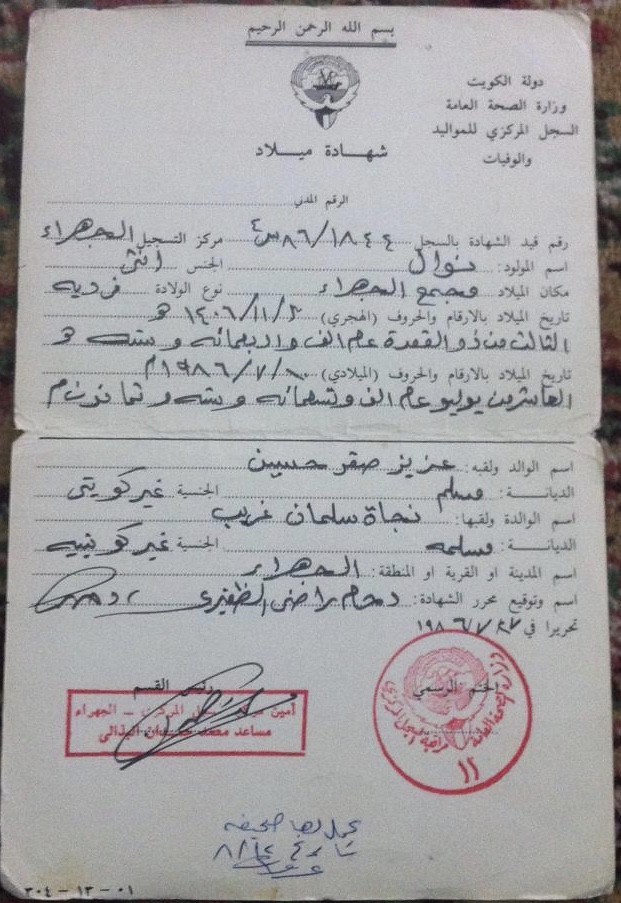 بسم الله الرحمن الرحيم
دولة الكويت
وزارة الصحة العامة
السجل المركزي للمواليد
والوفيات
شهادة ميلاد
الرقم المدني
رقم قيد الشهادة بالسجل ٨٦/١٨٤٤ مركز التسجيل الجهراء
اسم المولود: نوال الجنس انثى
مكان الميلاد مجمع الجهراء نوع الولادة فرديه
تاريخ الميلاد بالارقام والحروف (الهجري) ١٤٠٦/١١/٣ هـ
الثالث من ذو القعدة عام الف واربعمائه وسته هـ
تاريخ الميلاد بالارقام والحروف (الميلادي) ١٩٨٦/٧/١٠م
العاشر من يوليو عام الف وتسعمائه وسته وثمانون م
اسم الوالد ولقبه: عزيز صقر حسين
الديانة: مسلم الجنسية غير كويتي
اسم الوالدة ولقبها: نجاة سلمان غريب
الديانة: مسلمه الجنسية غير كويتيه
اسم المدينة او القرية او المنطقة: الجهراء
اسم وتوقيع محرر الشهادة: دحام راضي الظفيري
تحريرا في ١٩٨٦/٧/٢٧
رئيس القسم
الختم الرسمي
أمين السجل المركزي - الجهراء
مساعد البذالي
وزارة الصحة العامة
مراقبة السجل المركزي
١١
عمل لها صحيفه
٣٠٤ - ١٣ - ٠١